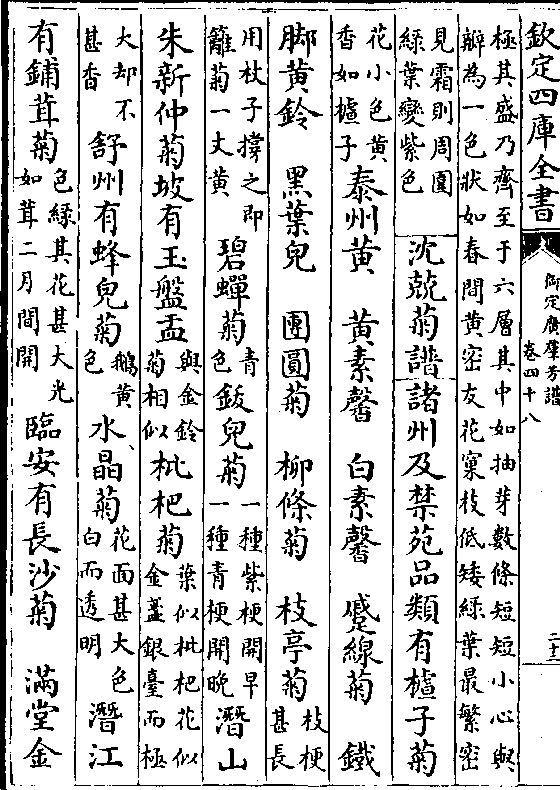 欽定四庫全書
御定廣羣芳譜
卷四十八
極其盛乃齊至于六層其中如抽芽數條短短小心與
瓣為一色狀如春間黃密友花窠枝低矮綠葉最繁密
見霜則周圓
綠葉變紫色
沈兢菊譜諸州及禁苑品類有櫨子菊
花小色黃
香如櫨子
泰州黃 黃素馨 白素馨 蹙線菊 鐵
脚黃鈴 黑葉兒 團圓菊 柳條菊 枝亭菊
枝梗
甚長
用杖子撐之即
籬菊一丈黃
碧蟬菊
青
色
鈸兒菊
一種紫梗開早
一種青梗開晚
潛山
朱新仲菊坡有玉盤盂
與金鈴
菊相似
枇杷菊
葉似枇杷花似
金盞銀臺而極
大却不
甚香
舒州有蜂兒菊
鵝黃
色
水晶菊
花面甚大色
白而透明
潛江
有鋪茸菊
色綠其花甚大光
如茸二月間開
臨安有長沙菊 滿堂金